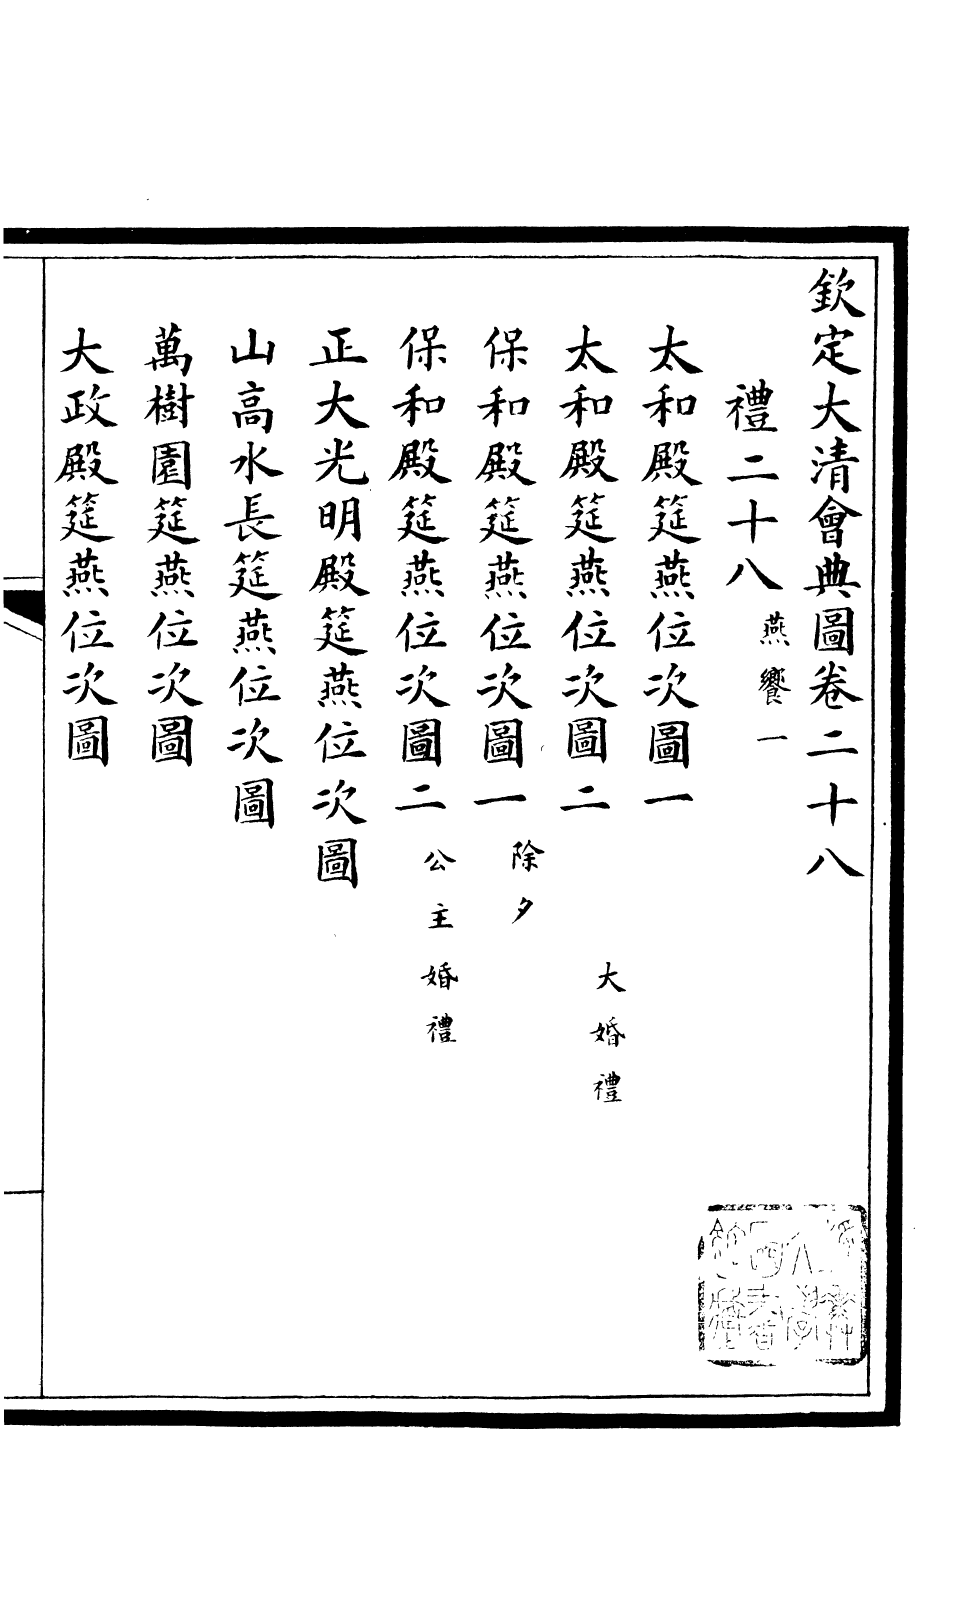 欽定大清會典圖卷二十八
禮二十八燕饗一
太和殿筵燕位次圖一
太和殿筵燕位次圖二大婚禮
保和殿筵燕位次圖一除夕
保和殿筵燕位次圖二公主婚禮
正大光明殿筵燕位次圖
山高水長筵燕位次圖
萬樹園筵燕位次圖
大政殿筵燕位次圖